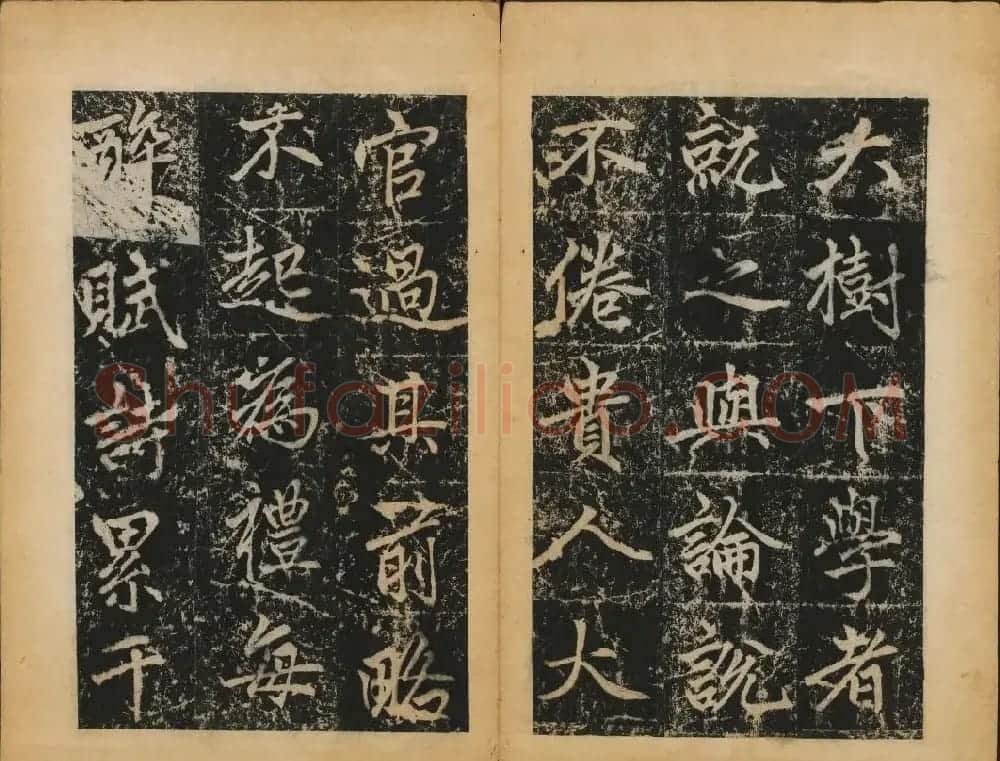 大樹下學者
就之與論說
不倦貴人大
官過其前略
未起為禮每
醉賦詩累千
Shufaziliao.COM